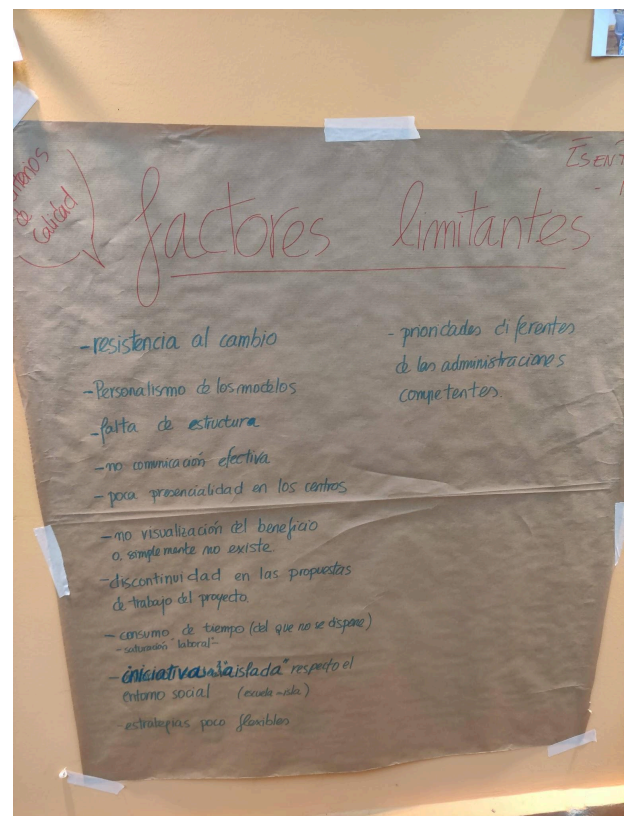 de
calidad
factores limitantes
-resistencia al cambio
-Personalismo de los modelos
-falta de estructura
-no comunicación efectiva
-poca presencialidad en los centros
-no visualización del beneficio
o, simplemente no existe.
-discontinuidad en las propuestas
de trabajo del proyecto.
-consumo de tiempo (del que no se dispone)
-saturación "laboral"-
-iniciativa "aislada" respecto el
entorno social (escuela-isla)
-estrategias poco flexibles
-prioridades diferentes
de las administraciones
competentes.